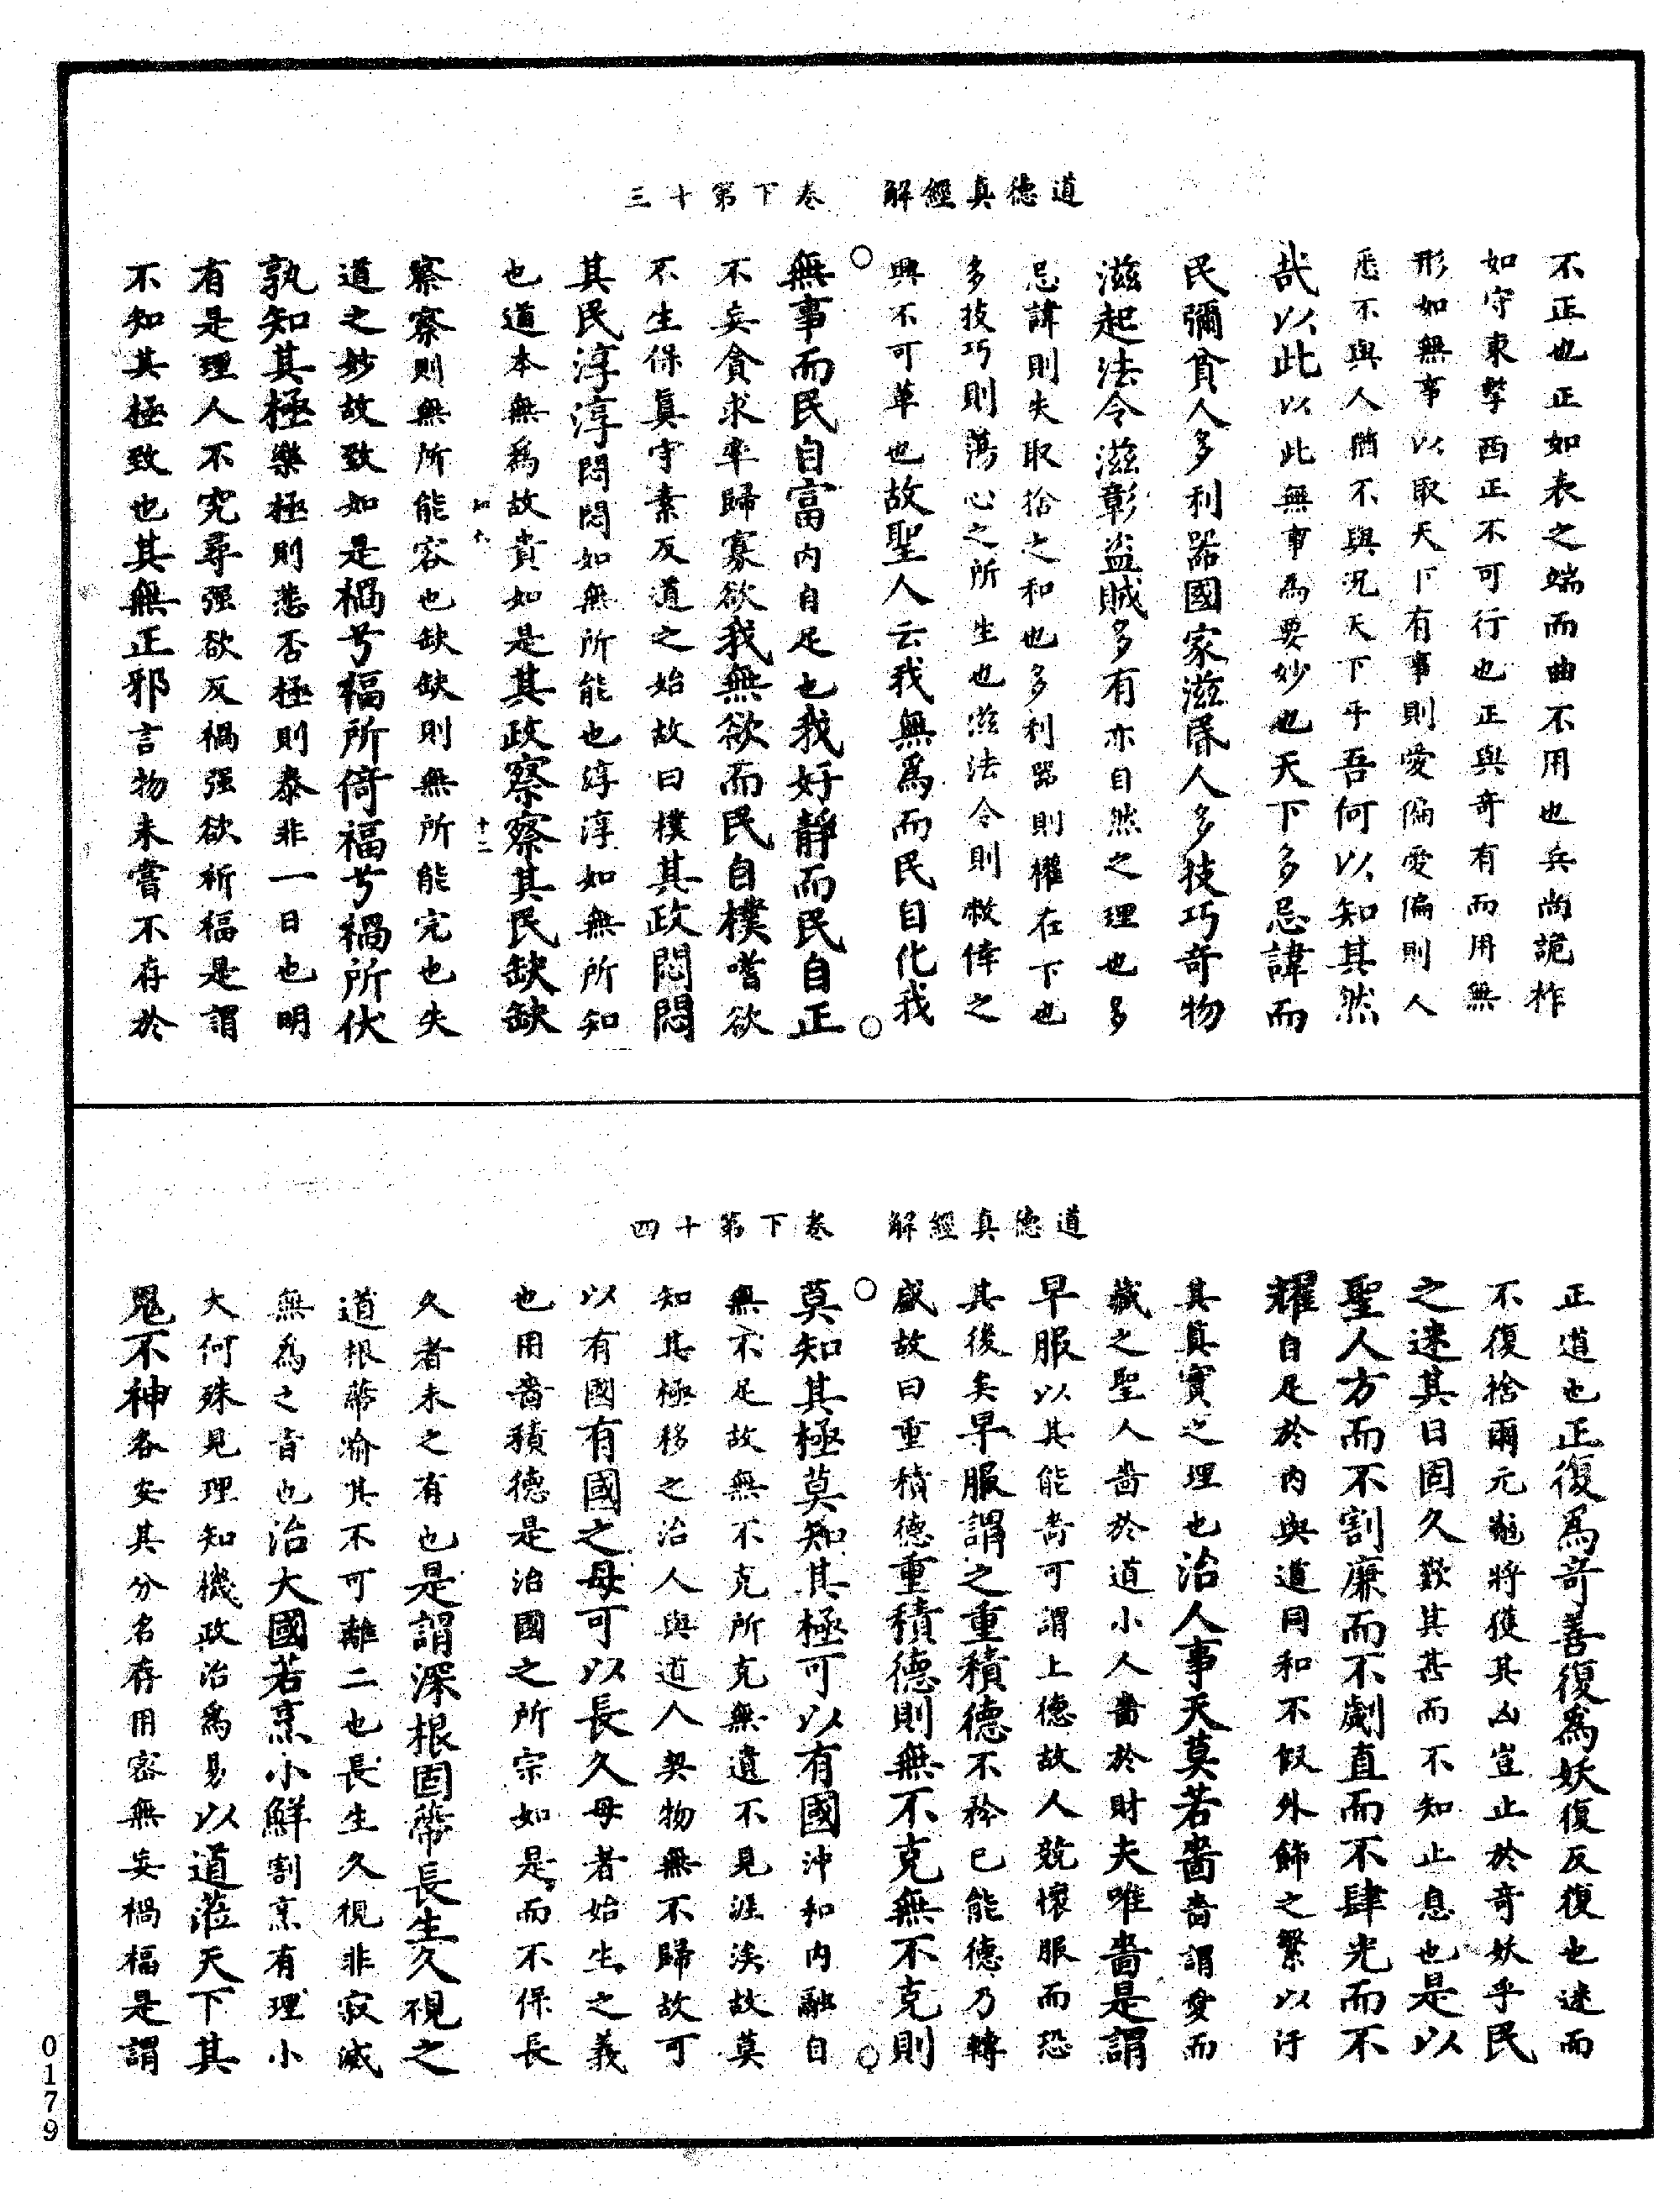 道德真經解　卷下第十三
不正也正如表之端而曲不用也兵尚詭柞
如守東擊西正不可行也正與奇有而用無
形如無事以取天下有事則愛偏愛偏則人
悉不與人猶不與況天下乎吾何以知其然
哉以此以此無事為要妙也天下多忌諱而
民彌貧人多利器國家滋昏人多技巧奇物
滋起法令滋彰盜賊多有亦自然之理也多
忌諱則失取捨之和也多利器則權在下也
多技巧則蕩心之所生也滋法令則敝倖之
興不可革也故聖人云我無為而民自化我
無事而民自富內自足也我好靜而民自正
不妄貪求率歸寡欲我無欲而民自樸嗜欲
不生保真守素反道之始故曰樸其政悶悶
其民淳淳悶悶如無所能也淳淳如無所知
也道本無為故貴如是其政察察其民缺缺
十二
察察則無所能容也缺缺則無所能完也失
道之妙故致如是禍兮福所倚福兮禍所伏
孰知其極樂極則悲否極則泰非一日也明
有是理人不究尋強欲反禍強欲祈福是謂
不知其極致也其無正邪言物未嘗不存於
道德真經解　卷下第十四
正道也正復為奇善復為妖復反復也迷而
不復捨爾元龜將獲其凶豈止於奇妖乎民
之迷其日固久歎其甚而不知止息也是以
聖人方而不割廉而不劌直而不肆光而不
耀自足於內與道同和不假外飾之繁以汙
其真實之理也治人事天莫若嗇嗇謂愛而
藏之聖人嗇於道小人嗇於財夫唯嗇是謂
早服以其能嗇可謂上德故人兢懷服而恐
其後矣早服謂之重積德不矜已能德乃轉
盛故曰重積德重積德則無不克無不克則
莫知其極莫知其極可以有國沖和內融自
無不足故無不克所克無遺不見涯涘故莫
知其極移之治人與道人契物無不歸故可
以有國有國之母可以長久母者始生之義
也用嗇積德是治國之所宗如是而不保長
久者未之有也是謂深根固蔕長生久視之
道根蔕喻其不可離二也長生久視非寂滅
無為之旨也治大國若烹小鮮割烹有理小
大何殊見理知機政治為易以道蒞天下其
鬼不神各安其分名存用密無妄禍福是謂
0179